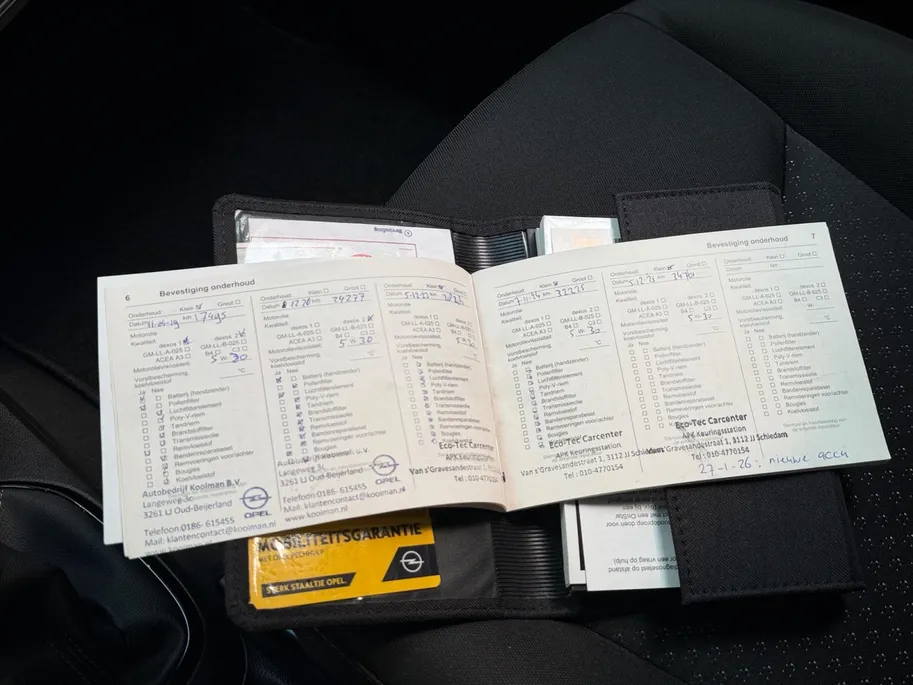 6 Bevestiging onderhoud
Onderhoud: Klein Groot
Datum 11-06-19 km 17495
Motorolie
Kwaliteit: dexos 1 dexos 2
GM-LL-A-025 GM-LL-B-025
ACEA A3 B4
Motorolieviscositeit: 5 W 30
Vorstbescherming
koelvloeistof °C
Ja Nee
Batterij (handzender)
Pollenfilter
Luchtfilterelement
Poly-V-riem
Tandriem
Brandstoffilter
Transmissieolie
Remvloeistof
Bandenreparatieset
Remvoeringen voor/achter
Bougies
Koelvloeistof
Autobedrijf Kooiman B.V.
Langeweg 3c
3261 LJ Oud-Beijerland
OPEL
Telefoon:0186- 615455
Mail: klantencontact@kooiman.nl
www.kooiman.nl
Onderhoud: Klein Groot
Datum 12.20 km 24277
Motorolie
Kwaliteit: dexos 1 dexos 2
GM-LL-A-025 GM-LL-B-025
ACEA A3 B4 C3
Motorolieviscositeit: 5 W 30
Vorstbescherming
koelvloeistof °C
Ja Nee
Batterij (handzender)
Pollenfilter
Luchtfilterelement
Poly-V-riem
Tandriem
Brandstoffilter
Transmissieolie
Remvloeistof
Bandenreparatieset
Remvoeringen voor/achter
Bougies
Koelvloeistof
Langeweg 3c
3261 LJ Oud-Beijerland
OPEL
Telefoon:0186- 615455
Mail: klantencontact@kooiman.nl
www.kooiman.nl
Onderhoud: Klein Groot
Datum 5-12-22 km
Motorolie
Kwaliteit: dexos 1 dexos 2
Batterij (handzender)
Pollenfilter
Luchtfilterelement
Poly-V-riem
Tandriem
Brandstoffilter
Transmissieolie
Remvloeistof
Bandenreparatieset
Remvoeringen voor/achter
Bougies
Koelvloeistof
Eco-Tec Carcenter
APK Keuringsstation
Van 's Gravesandestraat
Tel: 010-4770154
Bevestiging onderhoud 7
Onderhoud: Klein Groot
Datum km 32275
Motorolie
Kwaliteit: dexos 1 dexos 2
GM-LL-A-025 GM-LL-B-025
ACEA A3 B4 C3
Motorolieviscositeit: 5 W 30
Vorstbescherming
koelvloeistof °C
Ja Nee
Batterij (handzender)
Pollenfilter
Luchtfilterelement
Poly-V-riem
Tandriem
Brandstoffilter
Transmissieolie
Remvloeistof
Bandenreparatieset
Remvoeringen voor/achter
Bougies
Koelvloeistof
Eco-Tec Carcenter
APK Keuringsstation
Van 's Gravesandestraat 1, 3112 JJ Schiedam
Tel: 010-4770154
Onderhoud: Klein Groot
Datum 5-12-25 km
Motorolie
Kwaliteit: dexos 1 dexos 2
GM-LL-A-025 GM-LL-B-025
ACEA A3 B4 C3
Motorolieviscositeit: 5-30
Vorstbescherming
koelvloeistof °C
Ja Nee
Batterij (handzender)
Pollenfilter
Luchtfilterelement
Poly-V-riem
Tandriem
Brandstoffilter
Transmissieolie
Remvloeistof
Bandenreparatieset
Remvoeringen voor/achter
Bougies
Koelvloeistof
Eco-Tec Carcenter
APK Keuringsstation
1, 3112 JJ Schiedam
Tel: 010-4770154
Onderhoud: Klein Groot
Datum km
Motorolie
Kwaliteit: dexos 1 dexos 2
GM-LL-A-025 GM-LL-B-025
ACEA A3 B4 C3
Motorolieviscositeit: W
Vorstbescherming
koelvloeistof °C
Ja Nee
Batterij (handzender)
Pollenfilter
Luchtfilterelement
Poly-V-riem
Tandriem
Brandstoffilter
Transmissieolie
Remvloeistof
Bandenreparatieset
Remvoeringen voor/achter
Bougies
Koelvloeistof
27-1-26: nieuwe accu
MOBILITEITSGARANTIE
STERK STAALTJE OPEL.